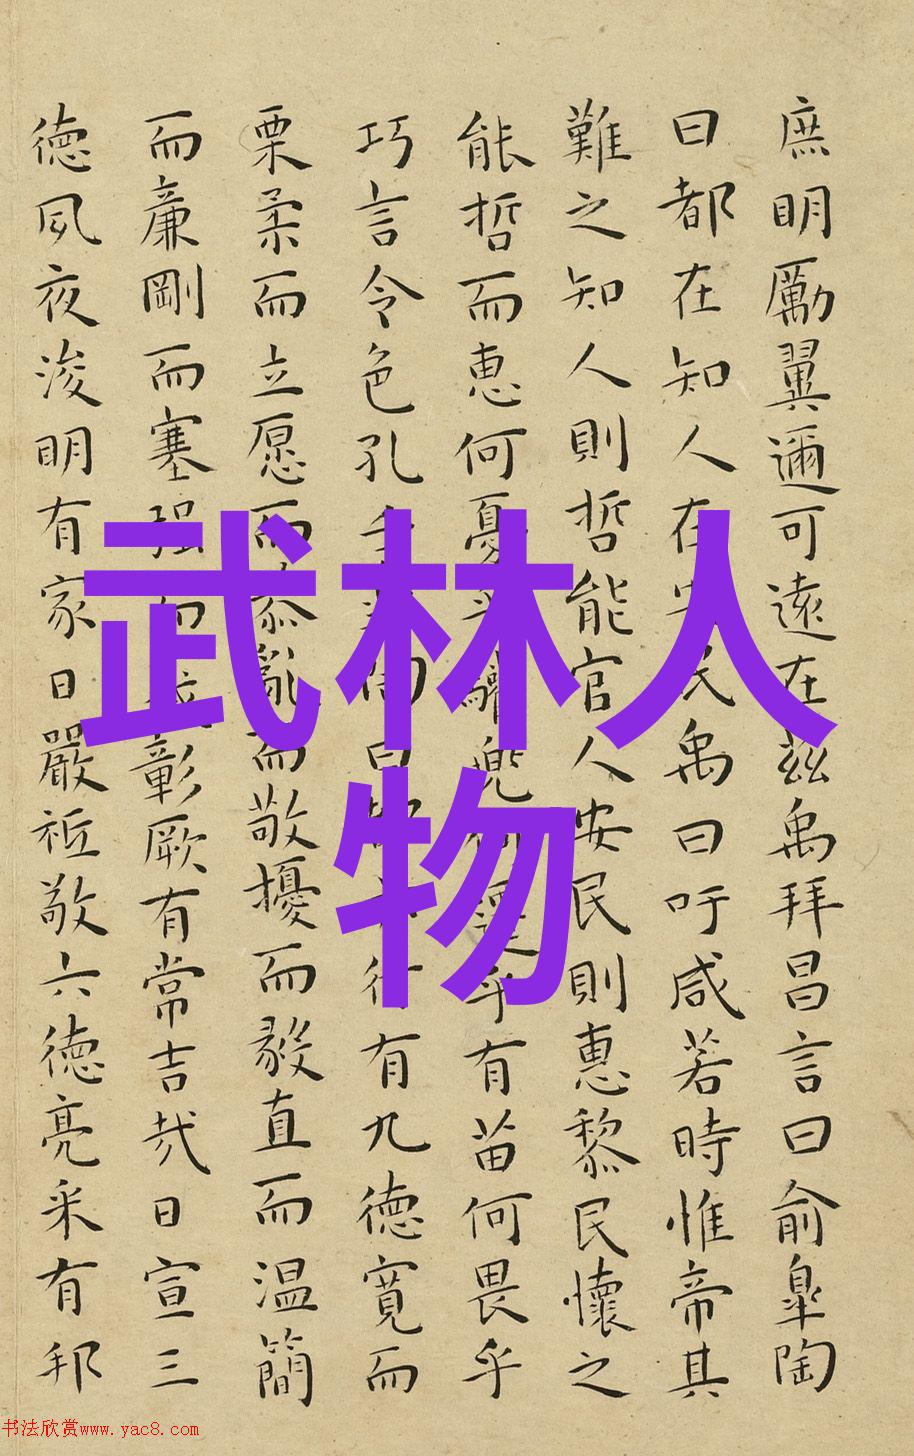 庶明勵翼邇可遠在茲禹拜昌言曰俞皐陶
曰都在知人在安民禹曰吁咸若時惟帝其
難之知人則哲能官人安民則惠黎民懷之
能哲而惠何憂乎驩兜何遷乎有苗何畏乎
巧言令色孔壬陶曰都亦行有九德寬而
栗柔而立愿而恭亂而敬擾而毅直而温簡
而廉剛而塞强而義彰厥有常吉哉日宣三
德夙夜浚明有家日嚴祗敬六德亮采有邦
武林人
物
书法欣赏www.yac8.com